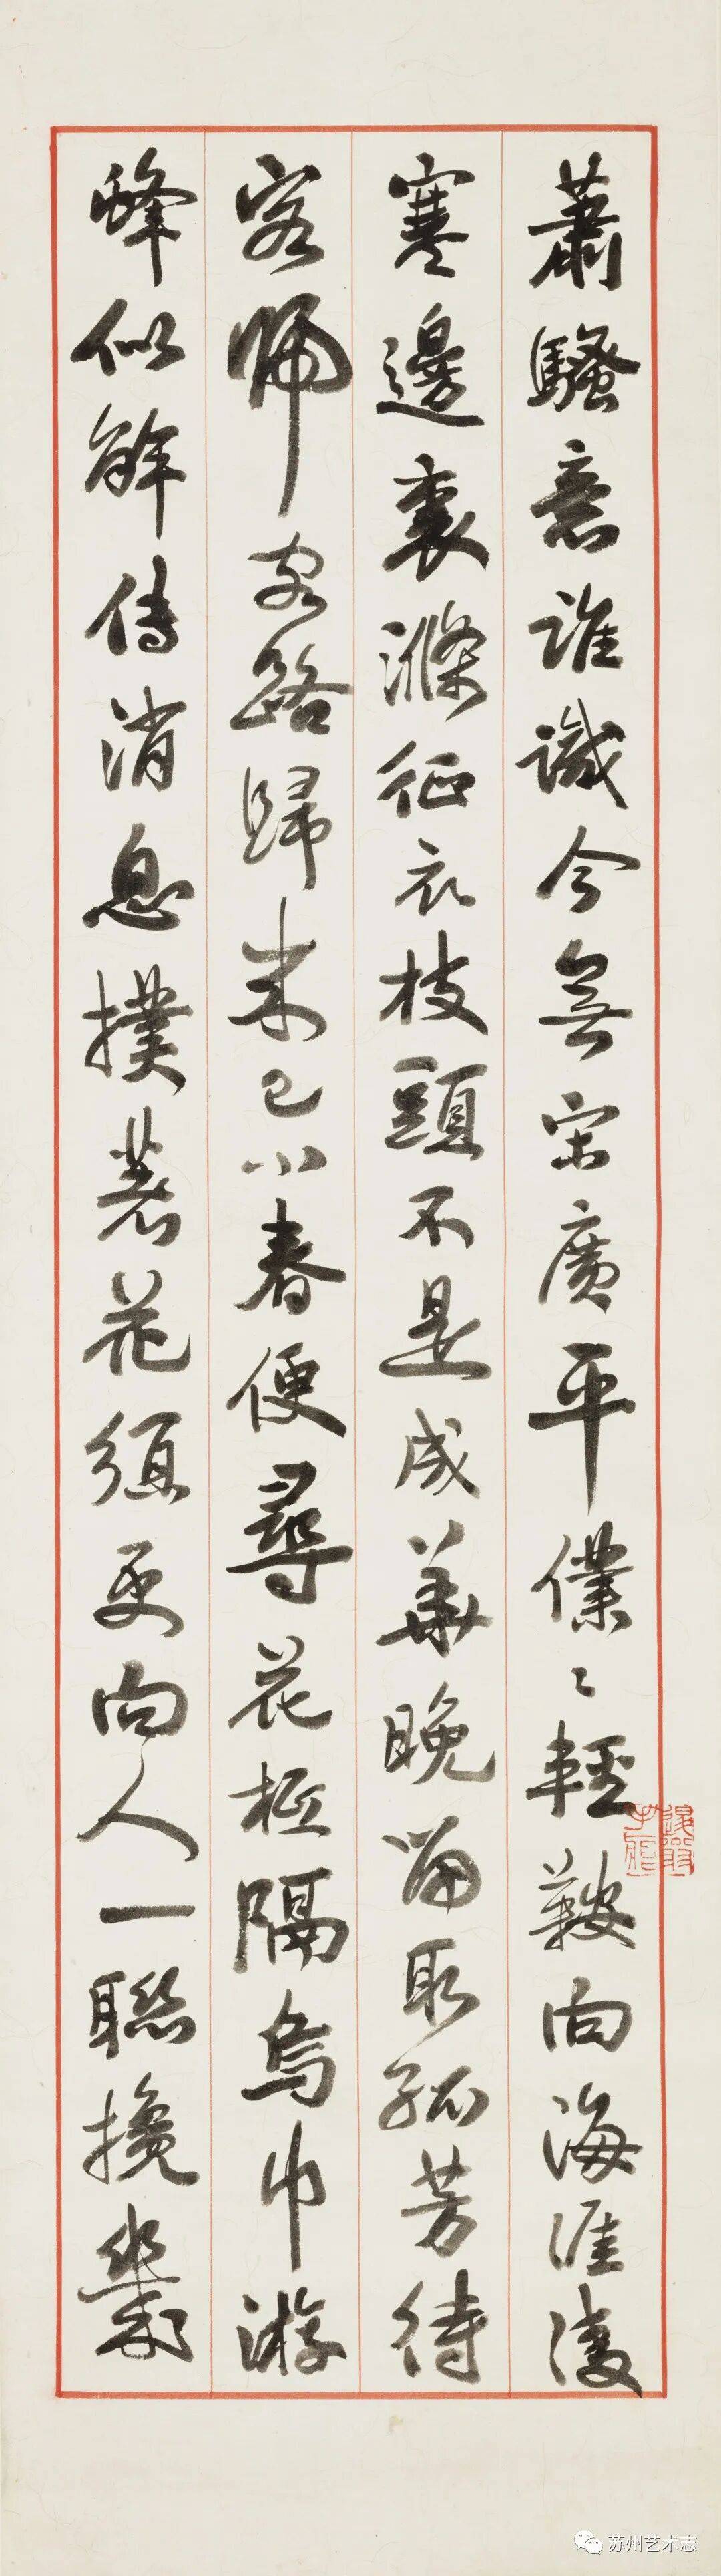 蕭騷意誰識今無宋廣平僕〻輕鞍向海涯凌
寒邊裏滌征衣枝頭不是成華晚留取孤芳待
客歸客路歸来已小春便尋花隔烏巾游
蜂似解傳消息撲著花須更向人一聯攙
苏州艺术志